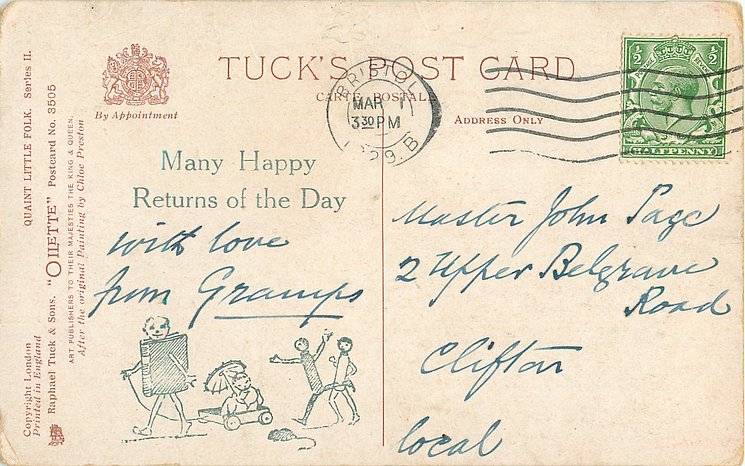 TUCK'S POST CARD
CARTE POSTALE
By Appointment
ADDRESS ONLY
BRISTOL
MAR 1
3 30 PM
1929. B
½ ½
POSTAGE
HALFPENNY
Many Happy
Returns of the Day
with love
from Gramps
Master John Page
2 Upper Belgrave
Road
Clifton
local
QUAINT LITTLE FOLK. Series II.
"OILETTE" Postcard No. 3505
ART PUBLISHERS TO THEIR MAJESTIES THE KING & QUEEN.
After the original Painting by Chloe Preston
Raphael Tuck & Sons.
Copyright London
Printed in England